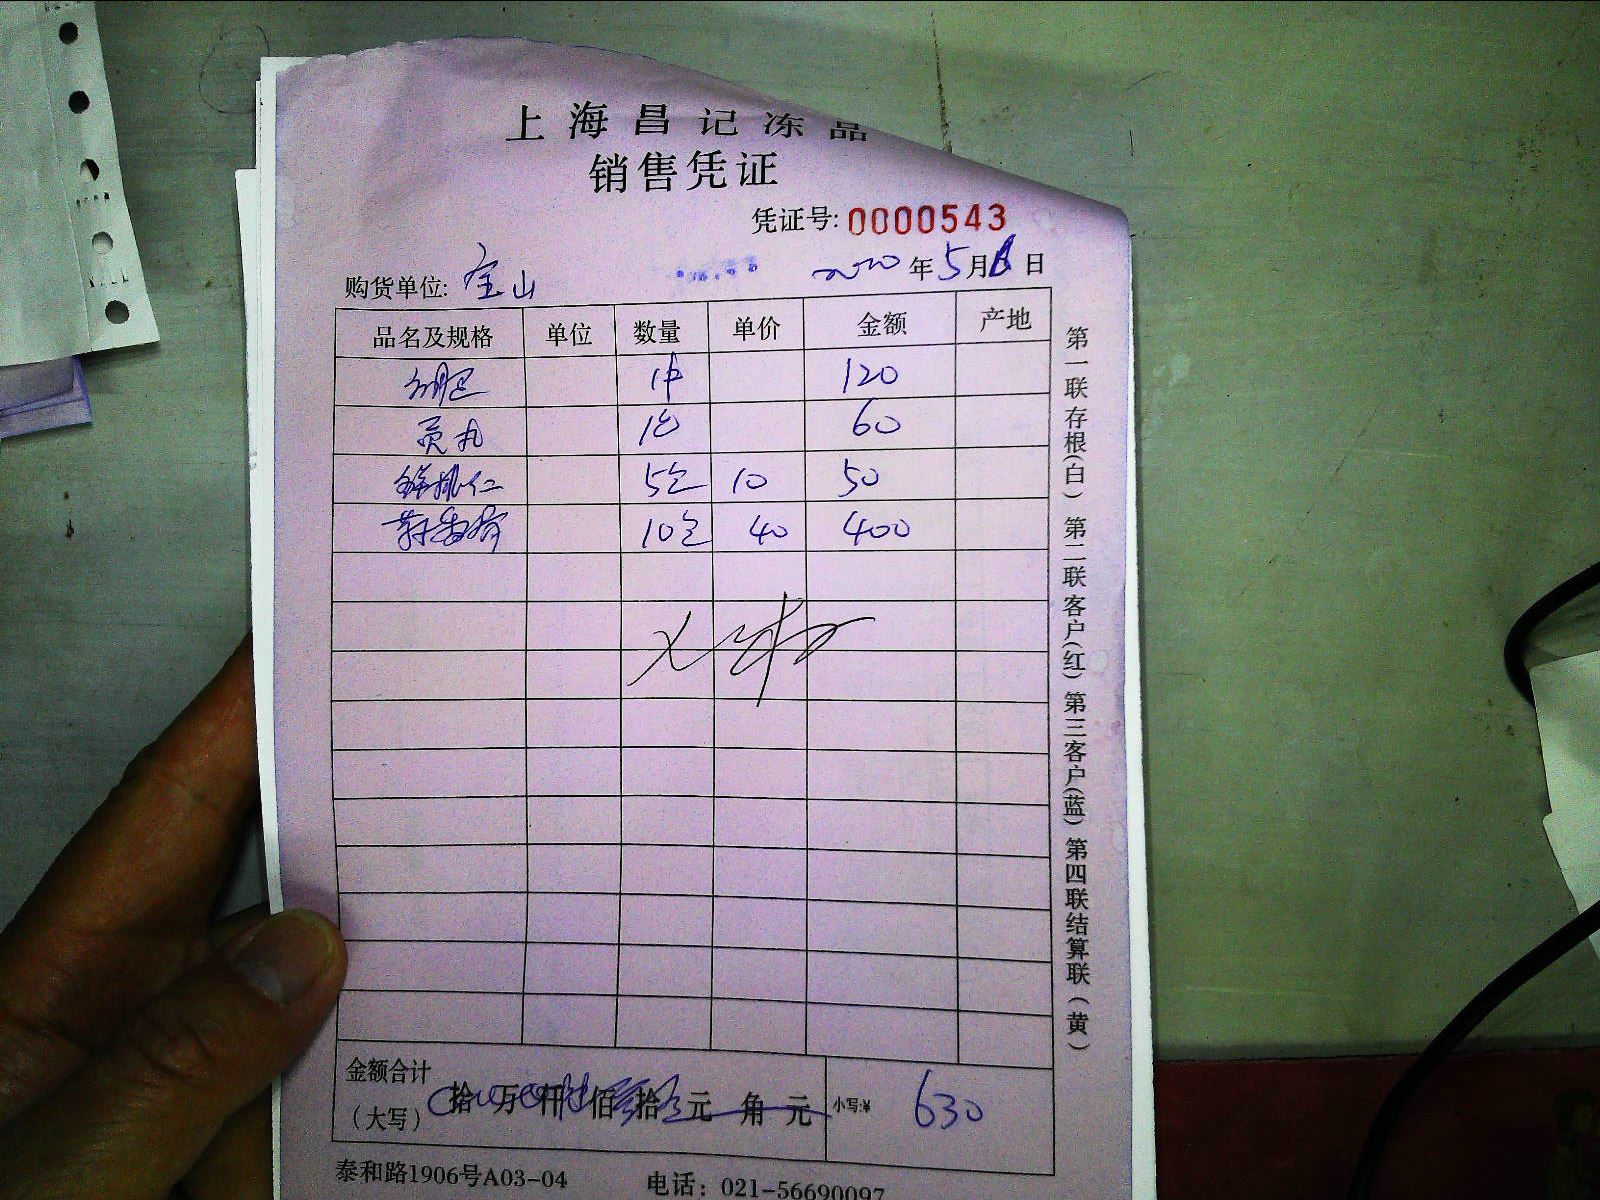 上海昌记冻品
销售凭证
凭证号: 0000543
购货单位: 宝山 2020年5月6日
品名及规格 单位 数量 单价 金额 产地
1件 120
贡丸 1包 60
5包 10 50
10包 40 400
金额合计
(大写) 拾 万 仟 佰 拾 元 角 元 小写:¥ 630
泰和路1906号A03-04 电话: 021-56690097
第一联存根(白) 第二联客户(红) 第三客户(蓝) 第四联结算联(黄)